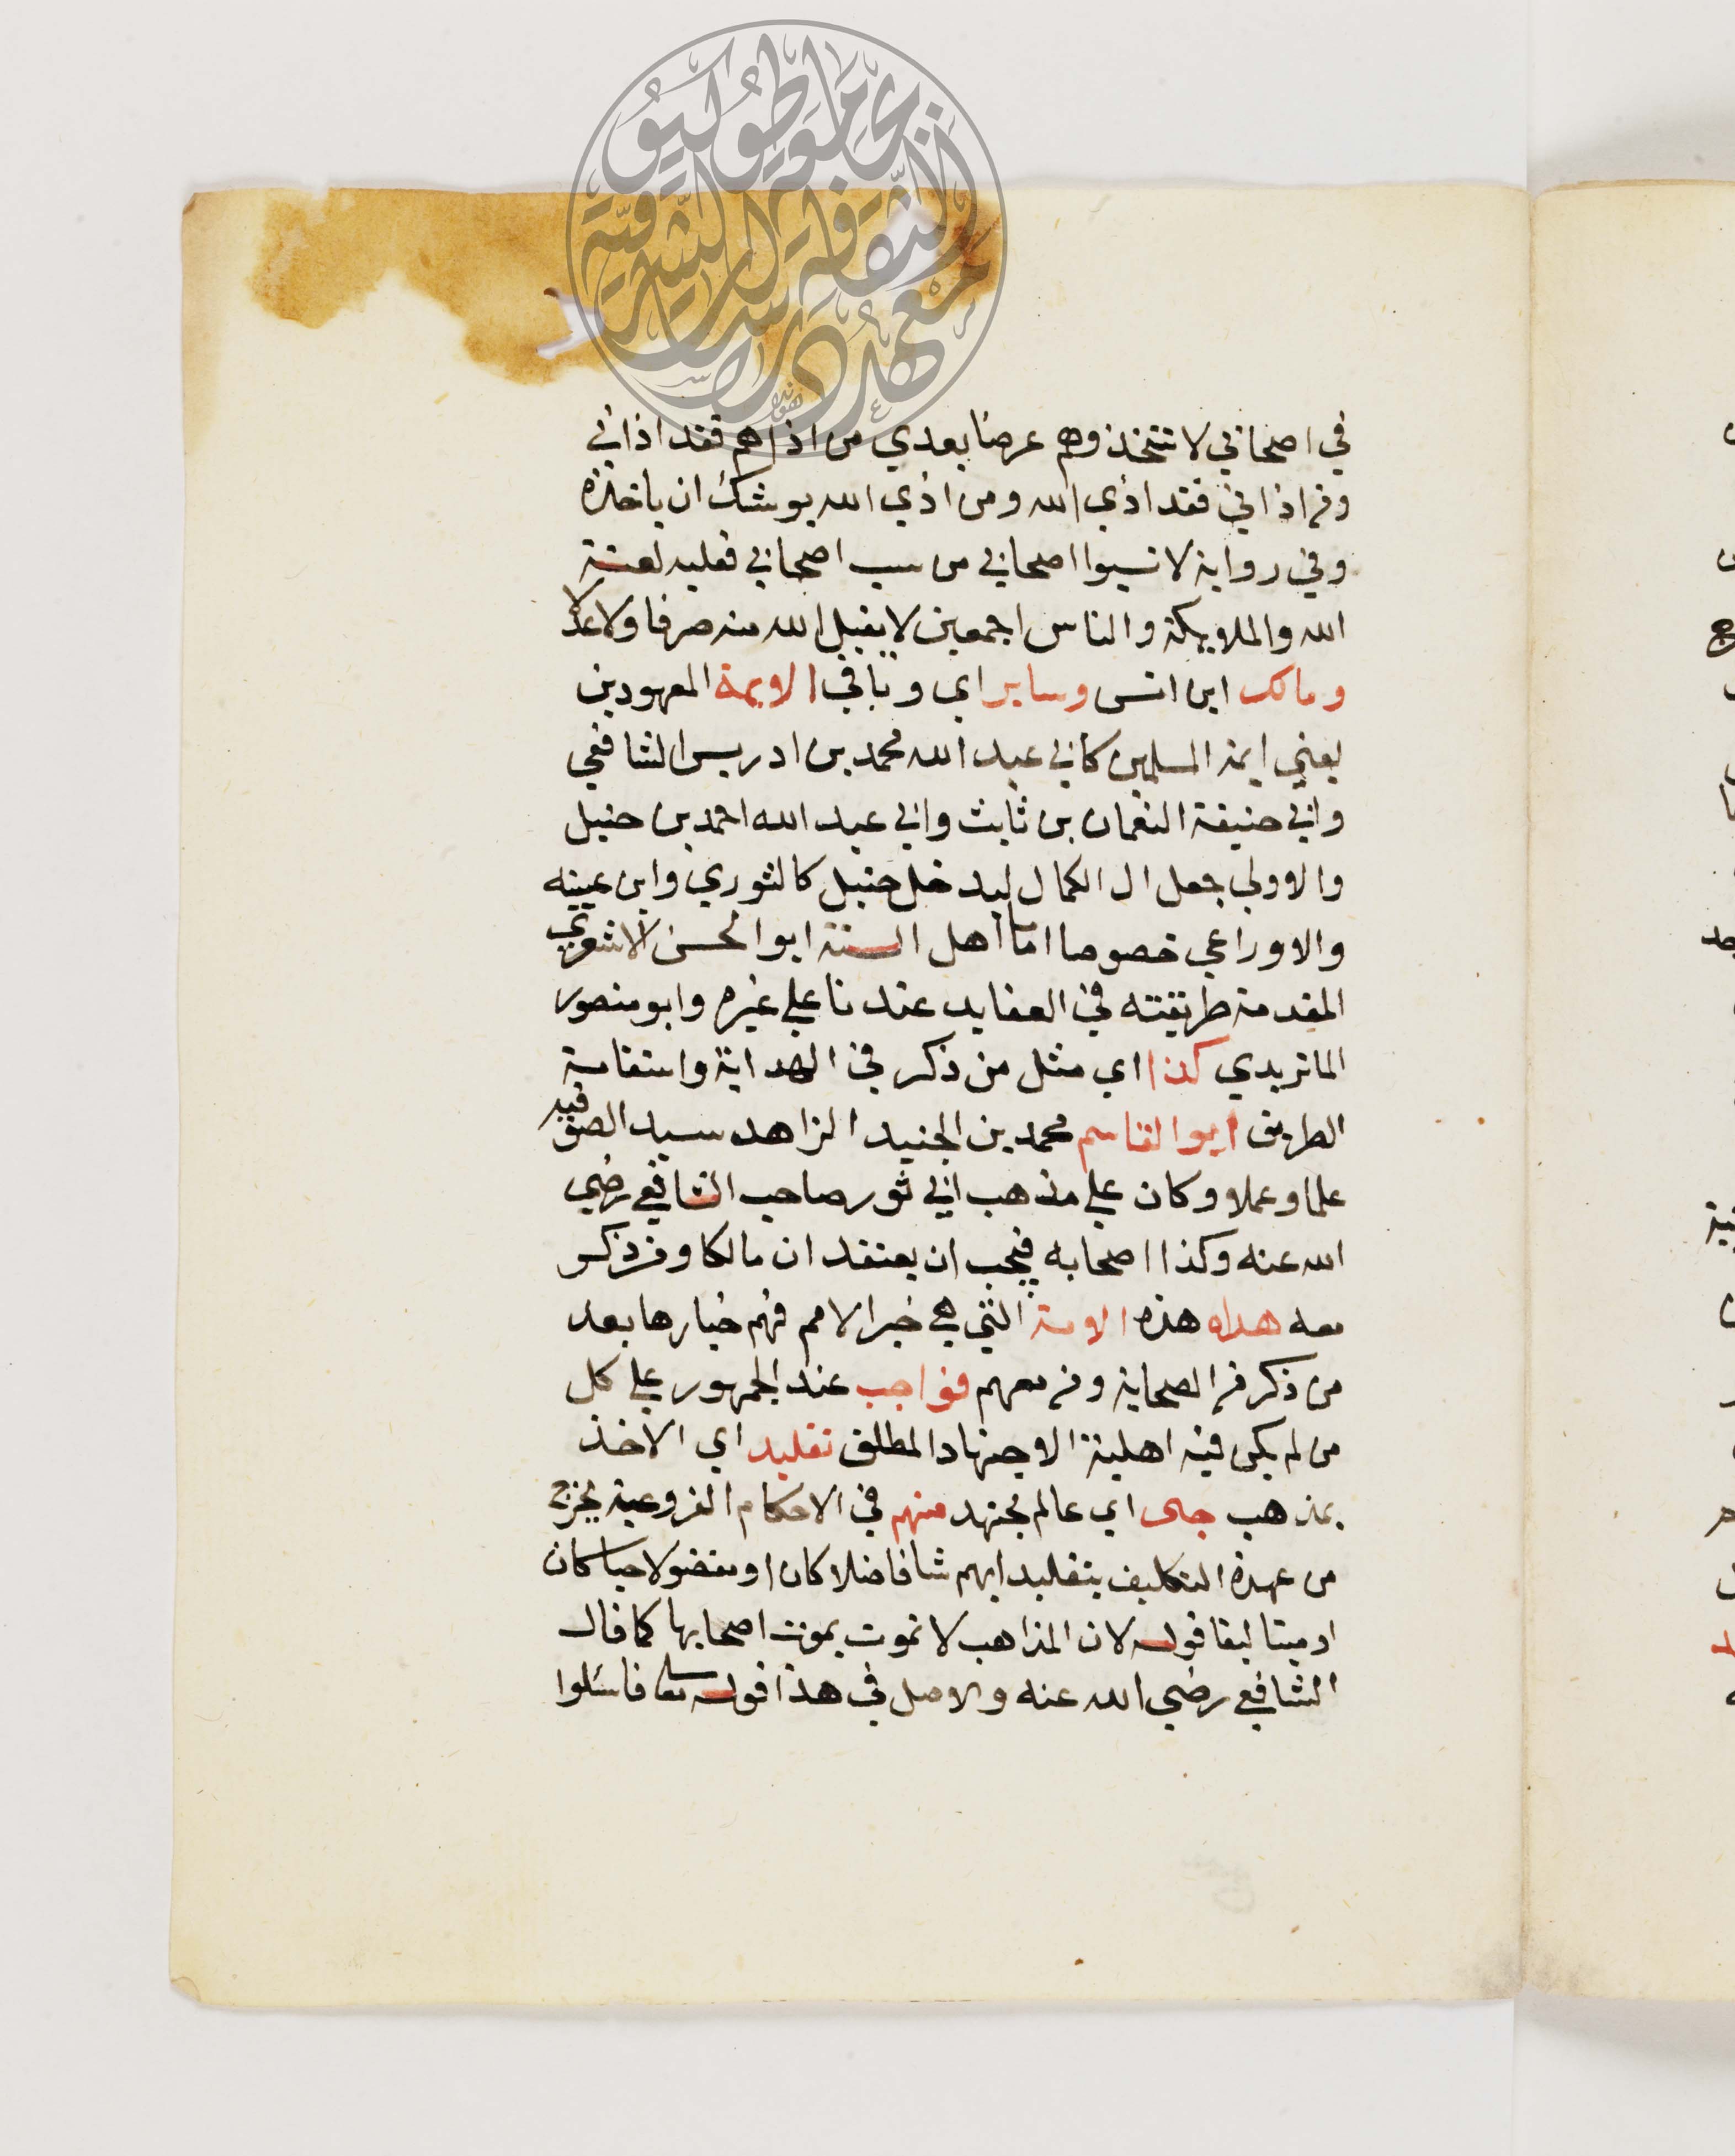 في اصحابي لا تتخذوهم عرضا بعدي من اذاهم فقد اذاني
ومن اذاني فقد اذي الله ومن اذي الله يوشك ان ياخذه
وفي رواية لا تسبوا اصحابي من سب اصحابي فعليه لعنة
الله والملايكة والناس اجمعين لا يقبل الله منه صرفا ولا عدلا
ومالك ابن انس وساير اي وباقي الايمة المعهودين
يعني ايمة المسلمين كابي عبد الله محمد بن ادريس الشافعي
وابي حنيفة النعمان بن ثابت وابي عبد الله احمد بن حنبل
والاولي جعل ال الكمال ليدخل حنبل كالثوري وابن عيينه
والاوزاعي خصوصا امام اهل السنة ابو الحسن الاشعري
المقدمة طريقته في العقايد عندنا علي غيره وابو منصور
الماتريدي كذا اي مثل من ذكر في الهداية واستقامة
الطريق ابو القاسم محمد بن الجنيد الزاهد سيد الصوفيه
علما وعملا وكان علي مذهب ابي ثور صاحب الشافعي رضي
الله عنه وكذا اصحابه فيجب ان يعتقد ان مالكا ومن ذكر
معه هداه هذه الامة التي هي خير الامم فهم خيارها بعد
من ذكر من الصحابة ومن معهم فواجب عند الجمهور علي كل
من لم يكن فيه اهلية الاجتهاد المطلق تقليد اي الاخذ
بمذهب حبر اي عالم مجتهد منهم في الاحكام الفروعية يخرج
من عهدة التكليف بتقليد ايهم شا فاضلا كان او مفضولا حيا كان
او ميتا لبقا قوله لان المذاهب لا تموت بموت اصحابها كما قال
الشافعي رضي الله عنه والاصل في هذا قوله تعا فاسئلوا
جامعة طوكيو
معهد دراسات الثقافة الشرقية